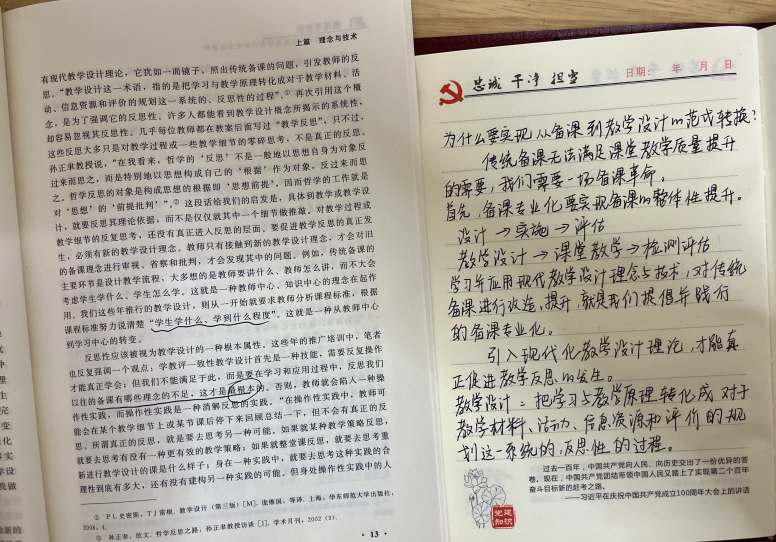 上篇 理念与技术
有现代教学设计理论，它犹如一面镜子，照出传统备课的问题，引发教师的反
思。“教学设计这一术语，指的是把学习与教学原理转化成对于教学材料、活
动、信息资源和评价的规划这一系统的、反思性的过程”。① 再次引用这个概
念，是为了强调它的反思性。许多人都能看到教学设计概念所揭示的系统性，
却容易忽视其反思性。几乎每位教师都在教案后面写过“教学反思”，只不过，
这些反思大多只是对教学过程或一些教学细节的零碎思考，不是真正的反思。
孙正聿教授说，“在我看来，哲学的‘反思’不是一般地以思想自身为对象反
过来而思之，而是特别地以思想构成自己的‘根据’作为对象，反过来而思
之。哲学反思的对象是构成思想的根据即‘思想前提’，因而哲学的工作就是
对‘思想’的‘前提批判’”。② 这段话给我们的启发是，具体到教学或教学设
计，就要反思其理论依据，而不是仅仅就其中一个细节做推敲。对教学过程或
教学细节的反复思考，还没有真正进入反思的层面。要促进教学反思的真正发
生，必须有新的教学设计理念。教师只有接触到新的教学设计理念，才会对旧
的备课理念进行审视、省察和批判，才会发现其中的问题。例如，传统备课的
主要环节是设计教学流程，大多想的是教师要讲什么、教师怎么讲，而不大会
考虑学生学什么、学生怎么学。这就是一种教师中心、知识中心的理念在起作
用。我们这些年推行的教学设计，则从一开始就要求教师分析课程标准，根据
课程标准努力说清楚“学生学什么、学到什么程度”。这就是一种从教师中心
到学习中心的转变。
反思性应该被视为教学设计的一种根本属性。这些年的推广培训中，笔者
也反复强调一个观点：学教评一致性教学设计首先是一种技能，需要反复操作
才能真正学会；但我们不能满足于此，而是要在学习和应用过程中，反思我们
以往的备课有哪些理念的不足，这才是最根本的。否则，教师就会陷入一种操
作性实践，而操作性实践是一种消解反思的实践。“在操作性实践中，教师可
能会在某个教学细节上或某节课后停下来回顾总结一下，但不会有真正的反
思。所谓真正的反思，就是要去思考另一种可能。如果就某种教学策略反思，
就要去思考有没有一种更有效的教学策略；如果就整堂课反思，就要去思考重
新进行教学设计的课是什么样子；身在一种实践中，就要去思考这种实践的合
理性到底有多大，还有没有建构另一种实践的可能。但身处操作性实践中的人
① P L 史密斯，T J 雷根. 教学设计（第三版）[M]. 庞维国，等译. 上海：华东师范大学出版社，
2008，4.
② 孙正聿，欣文. 哲学反思之路：孙正聿教授访谈 [J]. 学术月刊，2002（9）.
· 13 ·
忠诚 干净 担当
日期： 年 月 日
为什么要实现从备课到教学设计的范式转换？
传统备课无法满足课堂教学质量提升
的需要，我们需要一场备课革命。
首先，备课专业化要实现备课的整体性提升。
设计→实施→评估
教学设计→课堂教学→检测评估
学习并应用现代教学设计理念与技术，对传统
备课进行改造、提升，就是我们提倡并践行
的备课专业化。
引入现代化教学设计理论，才能真
正促进教学反思的发生。
教学设计：把学习与教学原理转化成对于
教学材料、活动、信息资源和评价的规
划这一系统的、反思性的过程。
过去一百年，中国共产党向人民、向历史交出了一份优异的答
卷。现在，中国共产党团结带领中国人民又踏上了实现第二个百年
奋斗目标新的赶考之路。
——习近平在庆祝中国共产党成立100周年大会上的讲话
党建
知识